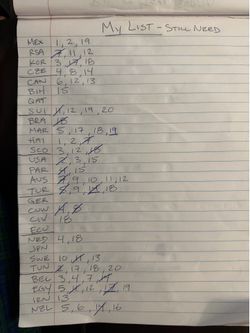 My LIST - STILL NEED
MEX 1, 2, 19
RSA 7, 11, 12
KOR 3, 17, 18
CZE 4, 8, 14
CAN 6, 12, 13
BIH 15
QAT
SUI 11, 12, 19, 20
BRA 18
MAR 5, 17, 18, 19
HAI 1, 2, 7
SCO 3, 12, 18
USA 2, 3, 15
PAR 4, 15
AUS 7, 9, 10, 11, 12
TUR 2, 9, 18
GER
CUW 4, 8
CIV 18
ECU
NED 4, 18
JPN
SWE 10, 11, 13
TUN 2, 17, 18, 20
BEL 3, 4, 7
EGY 5, 11, 12, 19
IRN 13
NZL 5, 6, 16